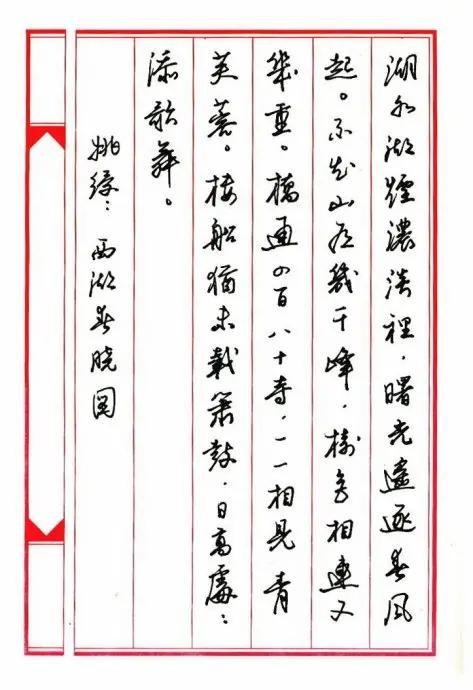 湖水湖煙濃淡裡，曙光遠逐春風
起。不知山有幾千峰，樹色相連又
幾重。橋通四百八十寺，一一相見青
芙蓉。樓船猶未載簫鼓，日高處：
添歌舞。
姚绶：西湖春晓图